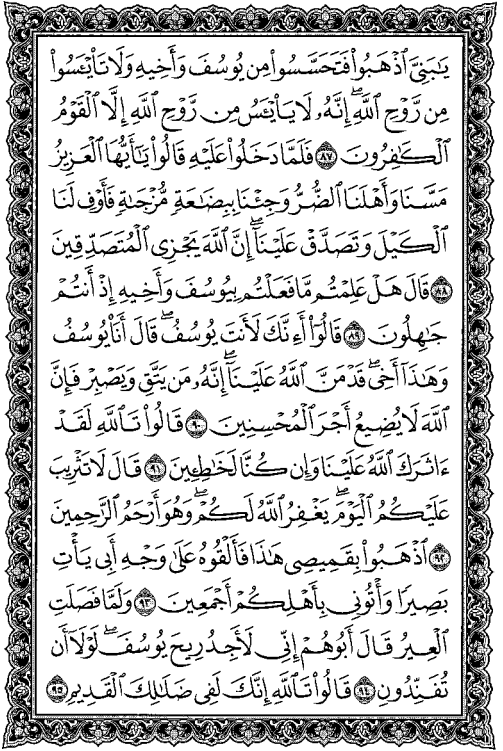 يَٰبَنِيَّ ٱذْهَبُوا۟ فَتَحَسَّسُوا۟ مِن يُوسُفَ وَأَخِيهِ وَلَا تَا۟يْـَٔسُوا۟
مِن رَّوْحِ ٱللَّهِ ۖ إِنَّهُۥ لَا يَا۟يْـَٔسُ مِن رَّوْحِ ٱللَّهِ إِلَّا ٱلْقَوْمُ
ٱلْكَٰفِرُونَ ٨٧ فَلَمَّا دَخَلُوا۟ عَلَيْهِ قَالُوا۟ يَٰٓأَيُّهَا ٱلْعَزِيزُ
مَسَّنَا وَأَهْلَنَا ٱلضُّرُّ وَجِئْنَا بِبِضَٰعَةٍ مُّزْجَىٰةٍ فَأَوْفِ لَنَا
ٱلْكَيْلَ وَتَصَدَّقْ عَلَيْنَآ ۖ إِنَّ ٱللَّهَ يَجْزِى ٱلْمُتَصَدِّقِينَ
٨٨ قَالَ هَلْ عَلِمْتُم مَّا فَعَلْتُم بِيُوسُفَ وَأَخِيهِ إِذْ أَنتُمْ
جَٰهِلُونَ ٨٩ قَالُوٓا۟ أَءِنَّكَ لَأَنتَ يُوسُفُ ۖ قَالَ أَنَا۠ يُوسُفُ
وَهَٰذَآ أَخِى ۖ قَدْ مَنَّ ٱللَّهُ عَلَيْنَآ ۖ إِنَّهُۥ مَن يَتَّقِ وَيَصْبِرْ فَإِنَّ
ٱللَّهَ لَا يُضِيعُ أَجْرَ ٱلْمُحْسِنِينَ ٩٠ قَالُوا۟ تَٱللَّهِ لَقَدْ
ءَاثَرَكَ ٱللَّهُ عَلَيْنَا وَإِن كُنَّا لَخَٰطِـِٔينَ ٩١ قَالَ لَا تَثْرِيبَ
عَلَيْكُمُ ٱلْيَوْمَ ۖ يَغْفِرُ ٱللَّهُ لَكُمْ ۖ وَهُوَ أَرْحَمُ ٱلرَّٰحِمِينَ
٩٢ ٱذْهَبُوا۟ بِقَمِيصِى هَٰذَا فَأَلْقُوهُ عَلَىٰ وَجْهِ أَبِى يَأْتِ
بَصِيرًا وَأْتُونِى بِأَهْلِكُمْ أَجْمَعِينَ ٩٣ وَلَمَّا فَصَلَتِ
ٱلْعِيرُ قَالَ أَبُوهُمْ إِنِّى لَأَجِدُ رِيحَ يُوسُفَ ۖ لَوْلَآ أَن
تُفَنِّدُونِ ٩٤ قَالُوا۟ تَٱللَّهِ إِنَّكَ لَفِى ضَلَٰلِكَ ٱلْقَدِيمِ ٩٥